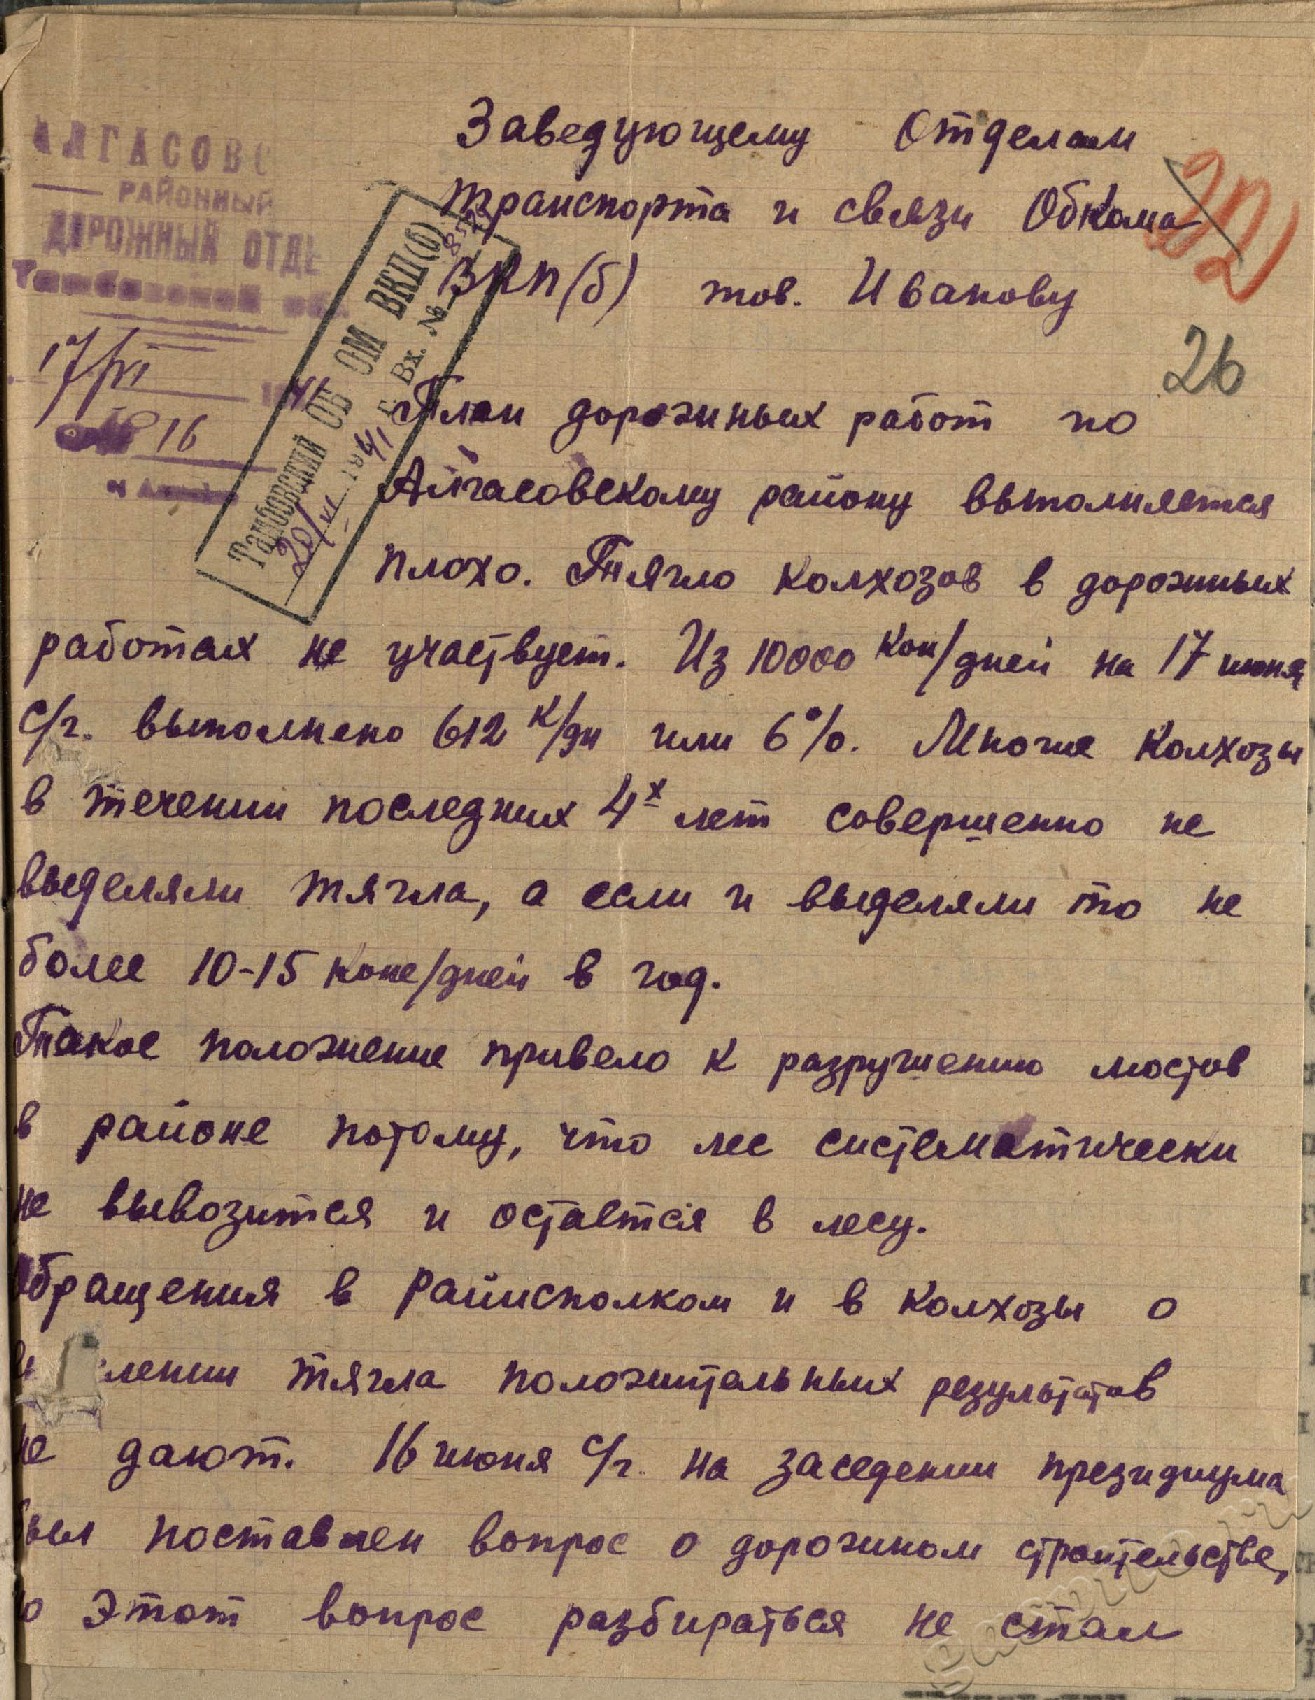 АЛГАСОВС
РАЙОННЫЙ
ДОРОЖНЫЙ ОТДЕ
Тамбовской об
17/VI 1941
№ 16
Тамбовский ОБКОМ ВКП(б)
20/VI 1941 г. Вх. №
Заведующему отделам
транспорта и связи Обкома
ВКП(б) тов. Иванову
26
План дорожных работ по
Алгасовскому району выполняется
плохо. Тягло колхозов в дорожных
работах не участвует. Из 10000 кон/дней на 17 июня
с/г. выполнено 612 к/дн или 6%. Многие колхозы
в течении последних 4х лет совершенно не
выделяли тягла, а если и выделяли то не
более 10-15 коне/дней в год.
Такое положение привело к разрушению мостов
в районе потому, что лес систематически
не вывозится и остается в лесу.
Обращения в Райисполком и в колхозы о
лении тягла положительных результатов
не дают. 16 июня с/г. на заседении президиума
был поставлен вопрос о дорожном строительстве,
но этот вопрос разбираться не стал
gaspito.ru